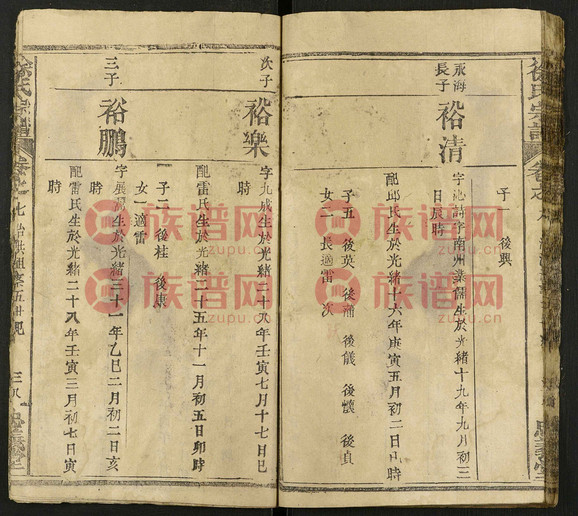 徐氏宗譜
永海
長子
裕清
子 後興
字 詩 字南州業儒生於光緒十九年九月初三
日辰時
配邱氏生於光緒十六年庚寅五月初二日 時
子五 後英 後蒲 後儀 後懷 後貞
女一 長適雷 次
次子
裕樂
字九成生於光緒二十八年壬寅七月十七日巳
時
配雷氏生於光緒二十五年十一月初五日卯時
子二 後桂 後康
女一 適雷
三子
裕鵬
字展 生於光緒三十一年乙巳二月初二亥
時
配雷氏生於光緒二十八年壬寅三月初七日寅
時
徐氏宗譜
三八
族谱网
zupu.cn
族谱网
zupu.cn
族谱网
zupu.cn
族谱网
zupu.cn